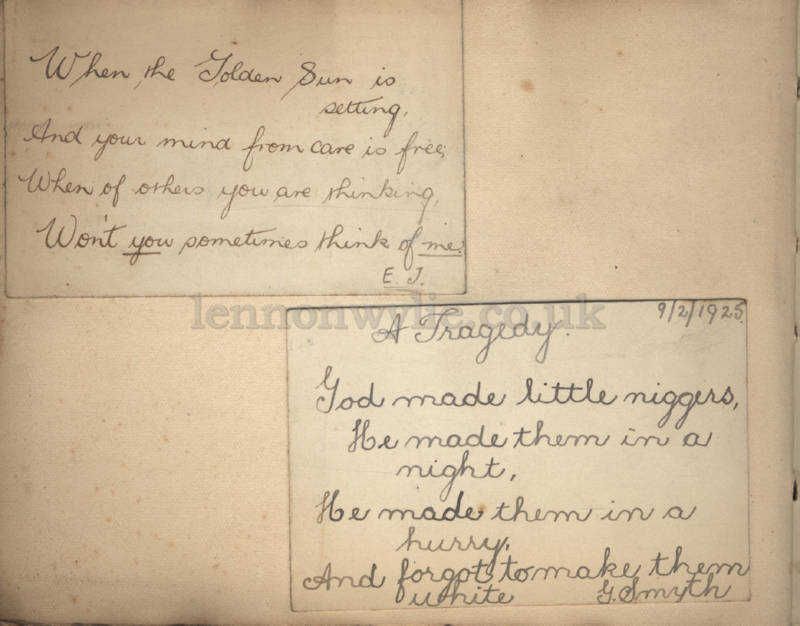 When the Golden Sun is
setting,
And your mind from care is free,
When of others you are thinking,
Won't you sometimes think of me.
E. J.
lennonwylie.co.uk
9/2/1925.
A Tragedy.
God made little niggers,
He made them in a
night,
He made them in a
hurry,
And forgot to make them
white G. Smyth